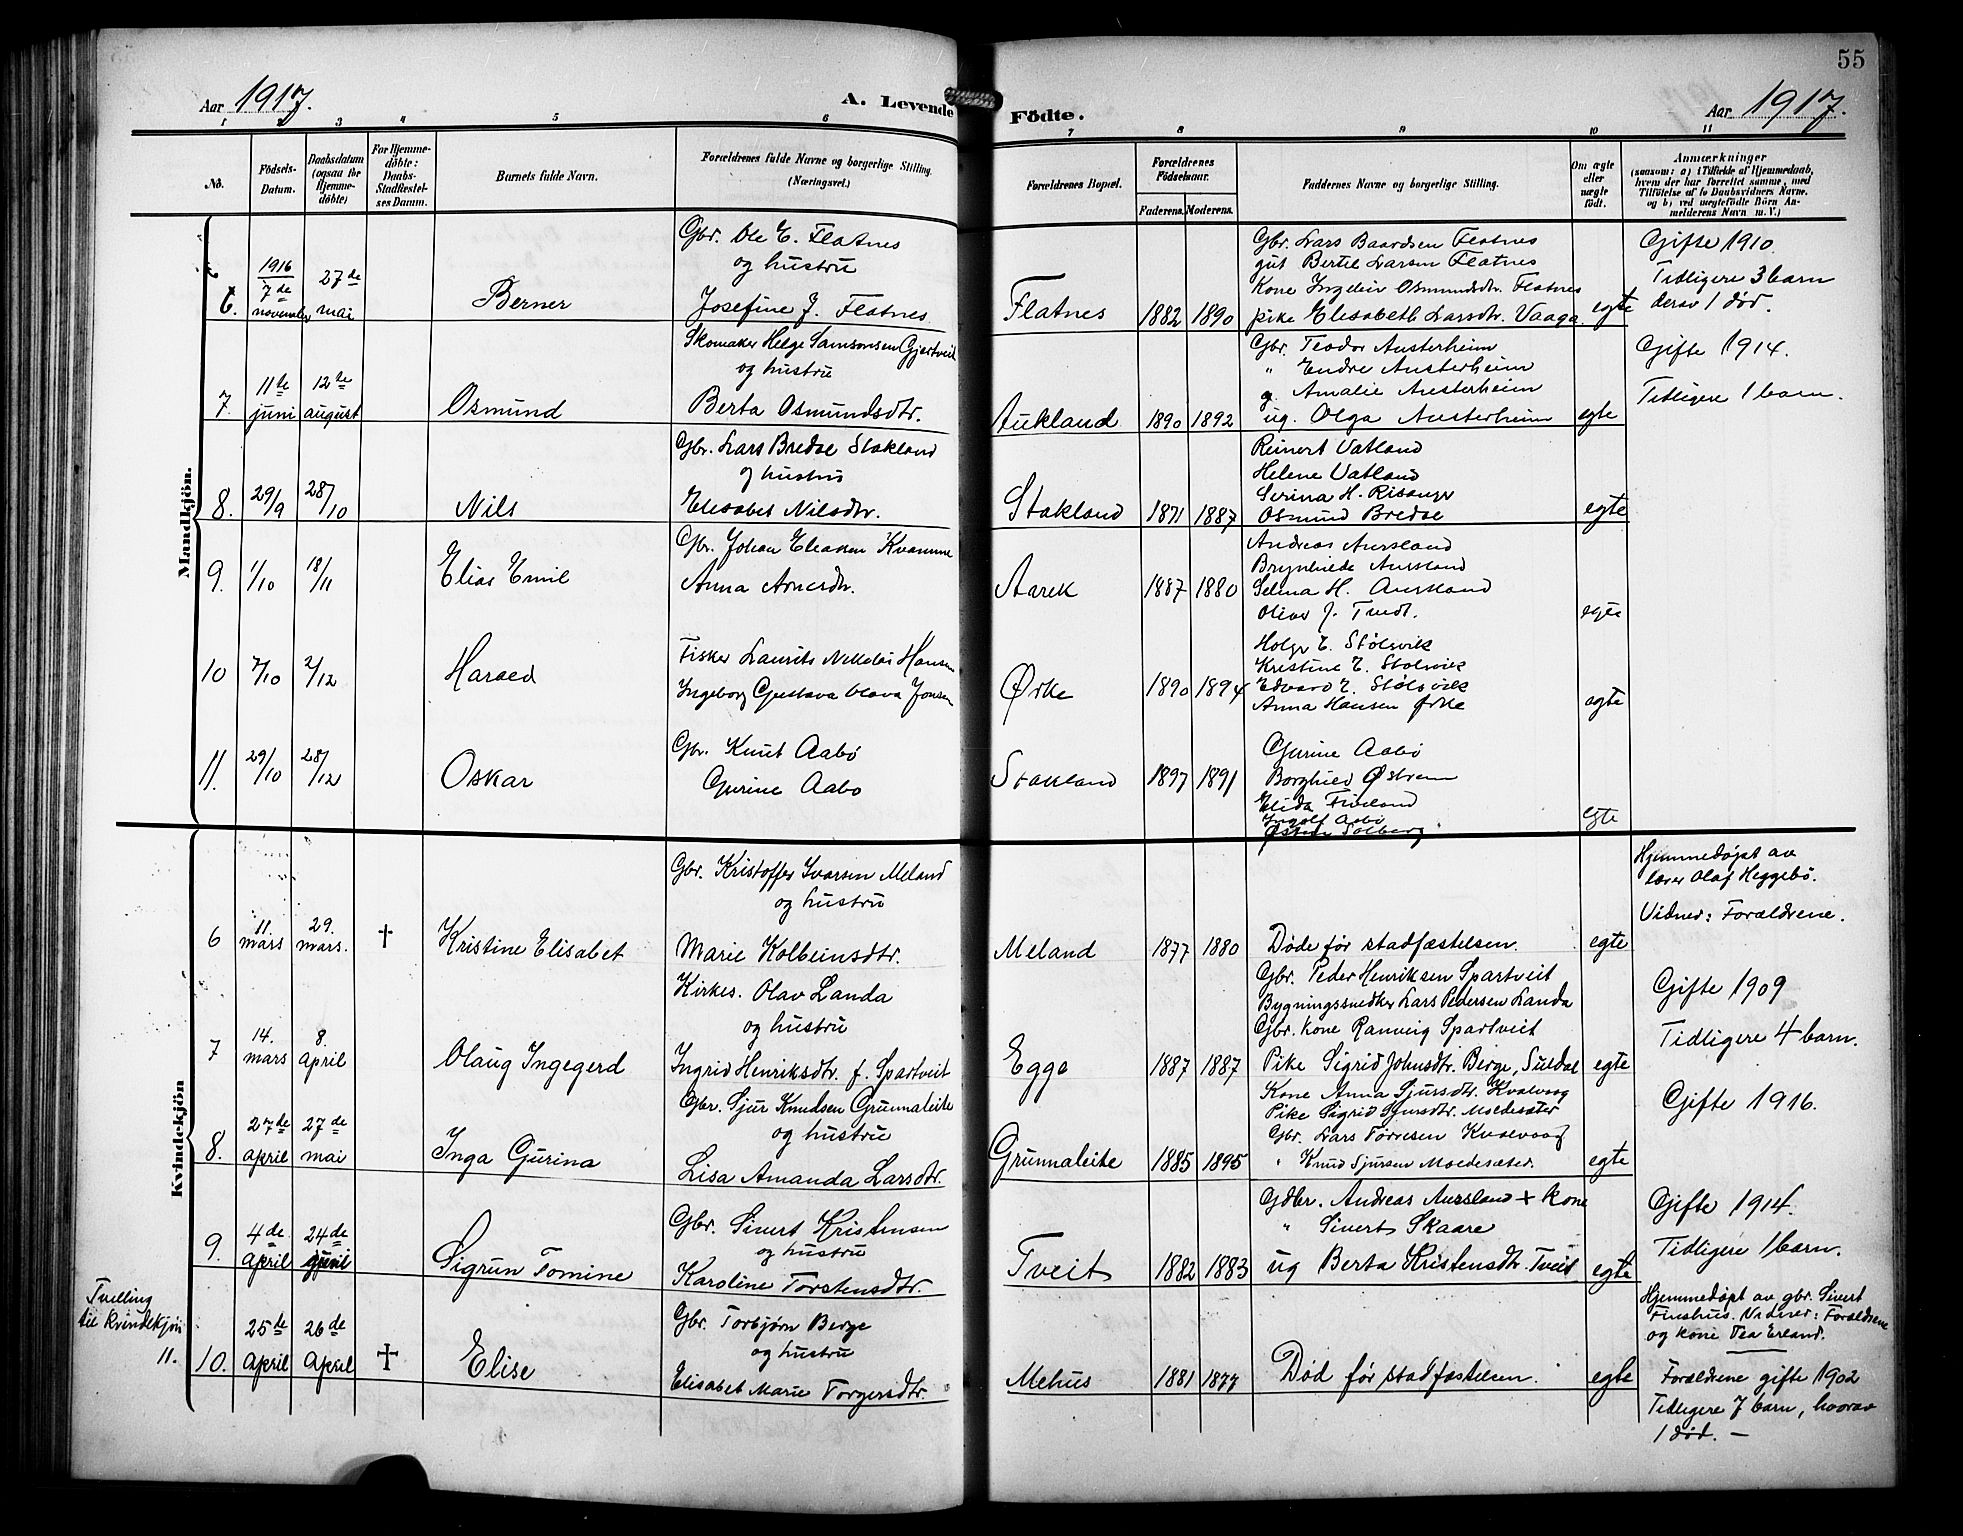 55
Aar 1917.
A. Levende
Fødte.
Aar 1917.
1 2 3 4 5 6 7 8 9 10 11
No.
Fødsels-
Datum.
Daabsdatum
(ogsaa for
Hjemme-
døbte)
For Hjemme-
døbte:
Daabs-
Stadfæstel-
ses Datum.
Barnets fulde Navn.
Forældrenes fulde Navne og borgerlige Stilling.
(Næringsvei.)
Forældrenes Bopæl.
Forældrenes
Fødselsaar.
Faderens. Moderens.
Faddernes Navne og borgerlige Stilling.
Om ægte
eller
uægte
født.
Anmærkninger
(saasom: a) i Tilfælde af Hjemmedaab,
hvem der har forrettet samme, med
Tilføielse af to Daabsvidners Navne,
og b) ved uægtefødte Børn An-
melderens Navn m. V.)
Mandkjön.
6.
1916
7de
november
27de
mai
Berner
Gbr. Ole E. Flatnes
og hustru
Josefine J. Flatnes.
Flatnes
1882 1890
Gbr. Lars Baardsen Flatnes
gut Bertel Larsen Flatnes
Kone Ingebør Osmundsdtr. Flatnes
pike Elisabeth Larsdtr. Vaaga.
egte
Gifte 1910.
Tidligere 3 barn
derav 1 død.
7.
11te
juni
12te
august
Osmund
Skomaker Helge Samsonsen Gjertveit
og hustru
Berta Osmundsdtr.
Aukland
1890 1892
Gbr. Teodor Austerheim
" Endre Austerheim
g. Amalie Austerheim
ug. Olga Austerheim
egte
Gifte 1914.
Tidligere 1 barn.
8.
29/9
28/10
Nils
Gbr. Lars Bredal Stakland
og hustru
Elisabet Nilsdtr.
Stakland
1871 1887
Reinert Vatland
Helene Vatland
Serina H. Risanger
Osmund Bredal
egte
9.
1/10
18/11
Elias Emil
Gbr. Johan Eliasen Kvamme
Anna Arnesdtr.
Aarek
1887 1880
Andreas Aursland
Brynhilde Aursland
Selma H. Aursland
Oliver J. Tvedt.
egte
10
7/10
2/12
Harald
Fisker Laurits Nikolai Hansen
Ingeborg Gustava Olava Jonsen
Ørke
1890 1894
Holger E. Stølsvik
Kristine E. Stølsvik
Edvard E. Stølsvik
Anna Hansen Ørke
egte
11.
29/10
28/12
Oskar
Gbr. Knut Aabø
Gurine Aabø
Stakland
1897 1891
Gurine Aabø
Borghild Østrem
Elida Fineland
Ingolf Aabø
Østen Solberg.
egte
Kvindekjön
6
11.
mars
29.
mars.
†
Kristine Elisabet
Gbr. Kristoffer Ivarsen Meland
og hustru
Marie Kolbeinsdtr.
Meland
1877 1880
Døde før stadfæstelsen.
egte
Hjemmedøpt av
lærer Olaf Heggebø.
Vidner: Forældrene.
7
14.
mars
8.
april
Olaug Ingegerd
Kirkes. Olav Landa
og hustru
Ingrid Henriksdtr. f. Spartveit
Egge
1887 1887
Gbr. Peder Henriksen Spartveit
Bygningssnedker Lars Pedersen Landa
Gbr. kone Ranveig Spartveit
Pike Sigrid Johnsdtr. Berge, Suldal
egte
Gifte 1909
Tidligere 4 barn.
8.
27de
april
27de
mai
Inga Gurina
Gbr. Sjur Knudsen Grunnaleite
og hustru
Lisa Amanda Larsdtr.
Grunnaleite
1885 1895
Kone Anna Sjursdtr. Kvalvaag
Pike Sigrid Sjursdtr. Moldesæter
Gbr. Lars Tørresen Kvalvaag
" Knud Sjursen Moldesæter.
egte
Gifte 1916.
9.
4de
april
24de
juni
Sigrun Tomine
Gbr. Sivert Kristensen
og hustru
Karoline Torstensdtr.
Tveit
1882 1883
Gdbr. Andreas Aursland + kone
" Sivert Skaare
ug Berta Kristensdtr. Tveit
egte
Gifte 1914.
Tidligere 1 barn.
Tvilling
til kvindekjøn
11.
10.
25de
april
26de
april
†
Elise
Gbr. Torbjørn Berge
og hustru
Elisabet Marie Torgersdtr.
Mehus
1881 1877
Død før stadfæstelsen.
egte
Hjemmedøpt av gbr. Sivert
Finshus. Vidner: Forældrene
og kone Tea Erland.
Forældrene gifte 1902
Tidligere 7 barn, hvorav
1 død. —